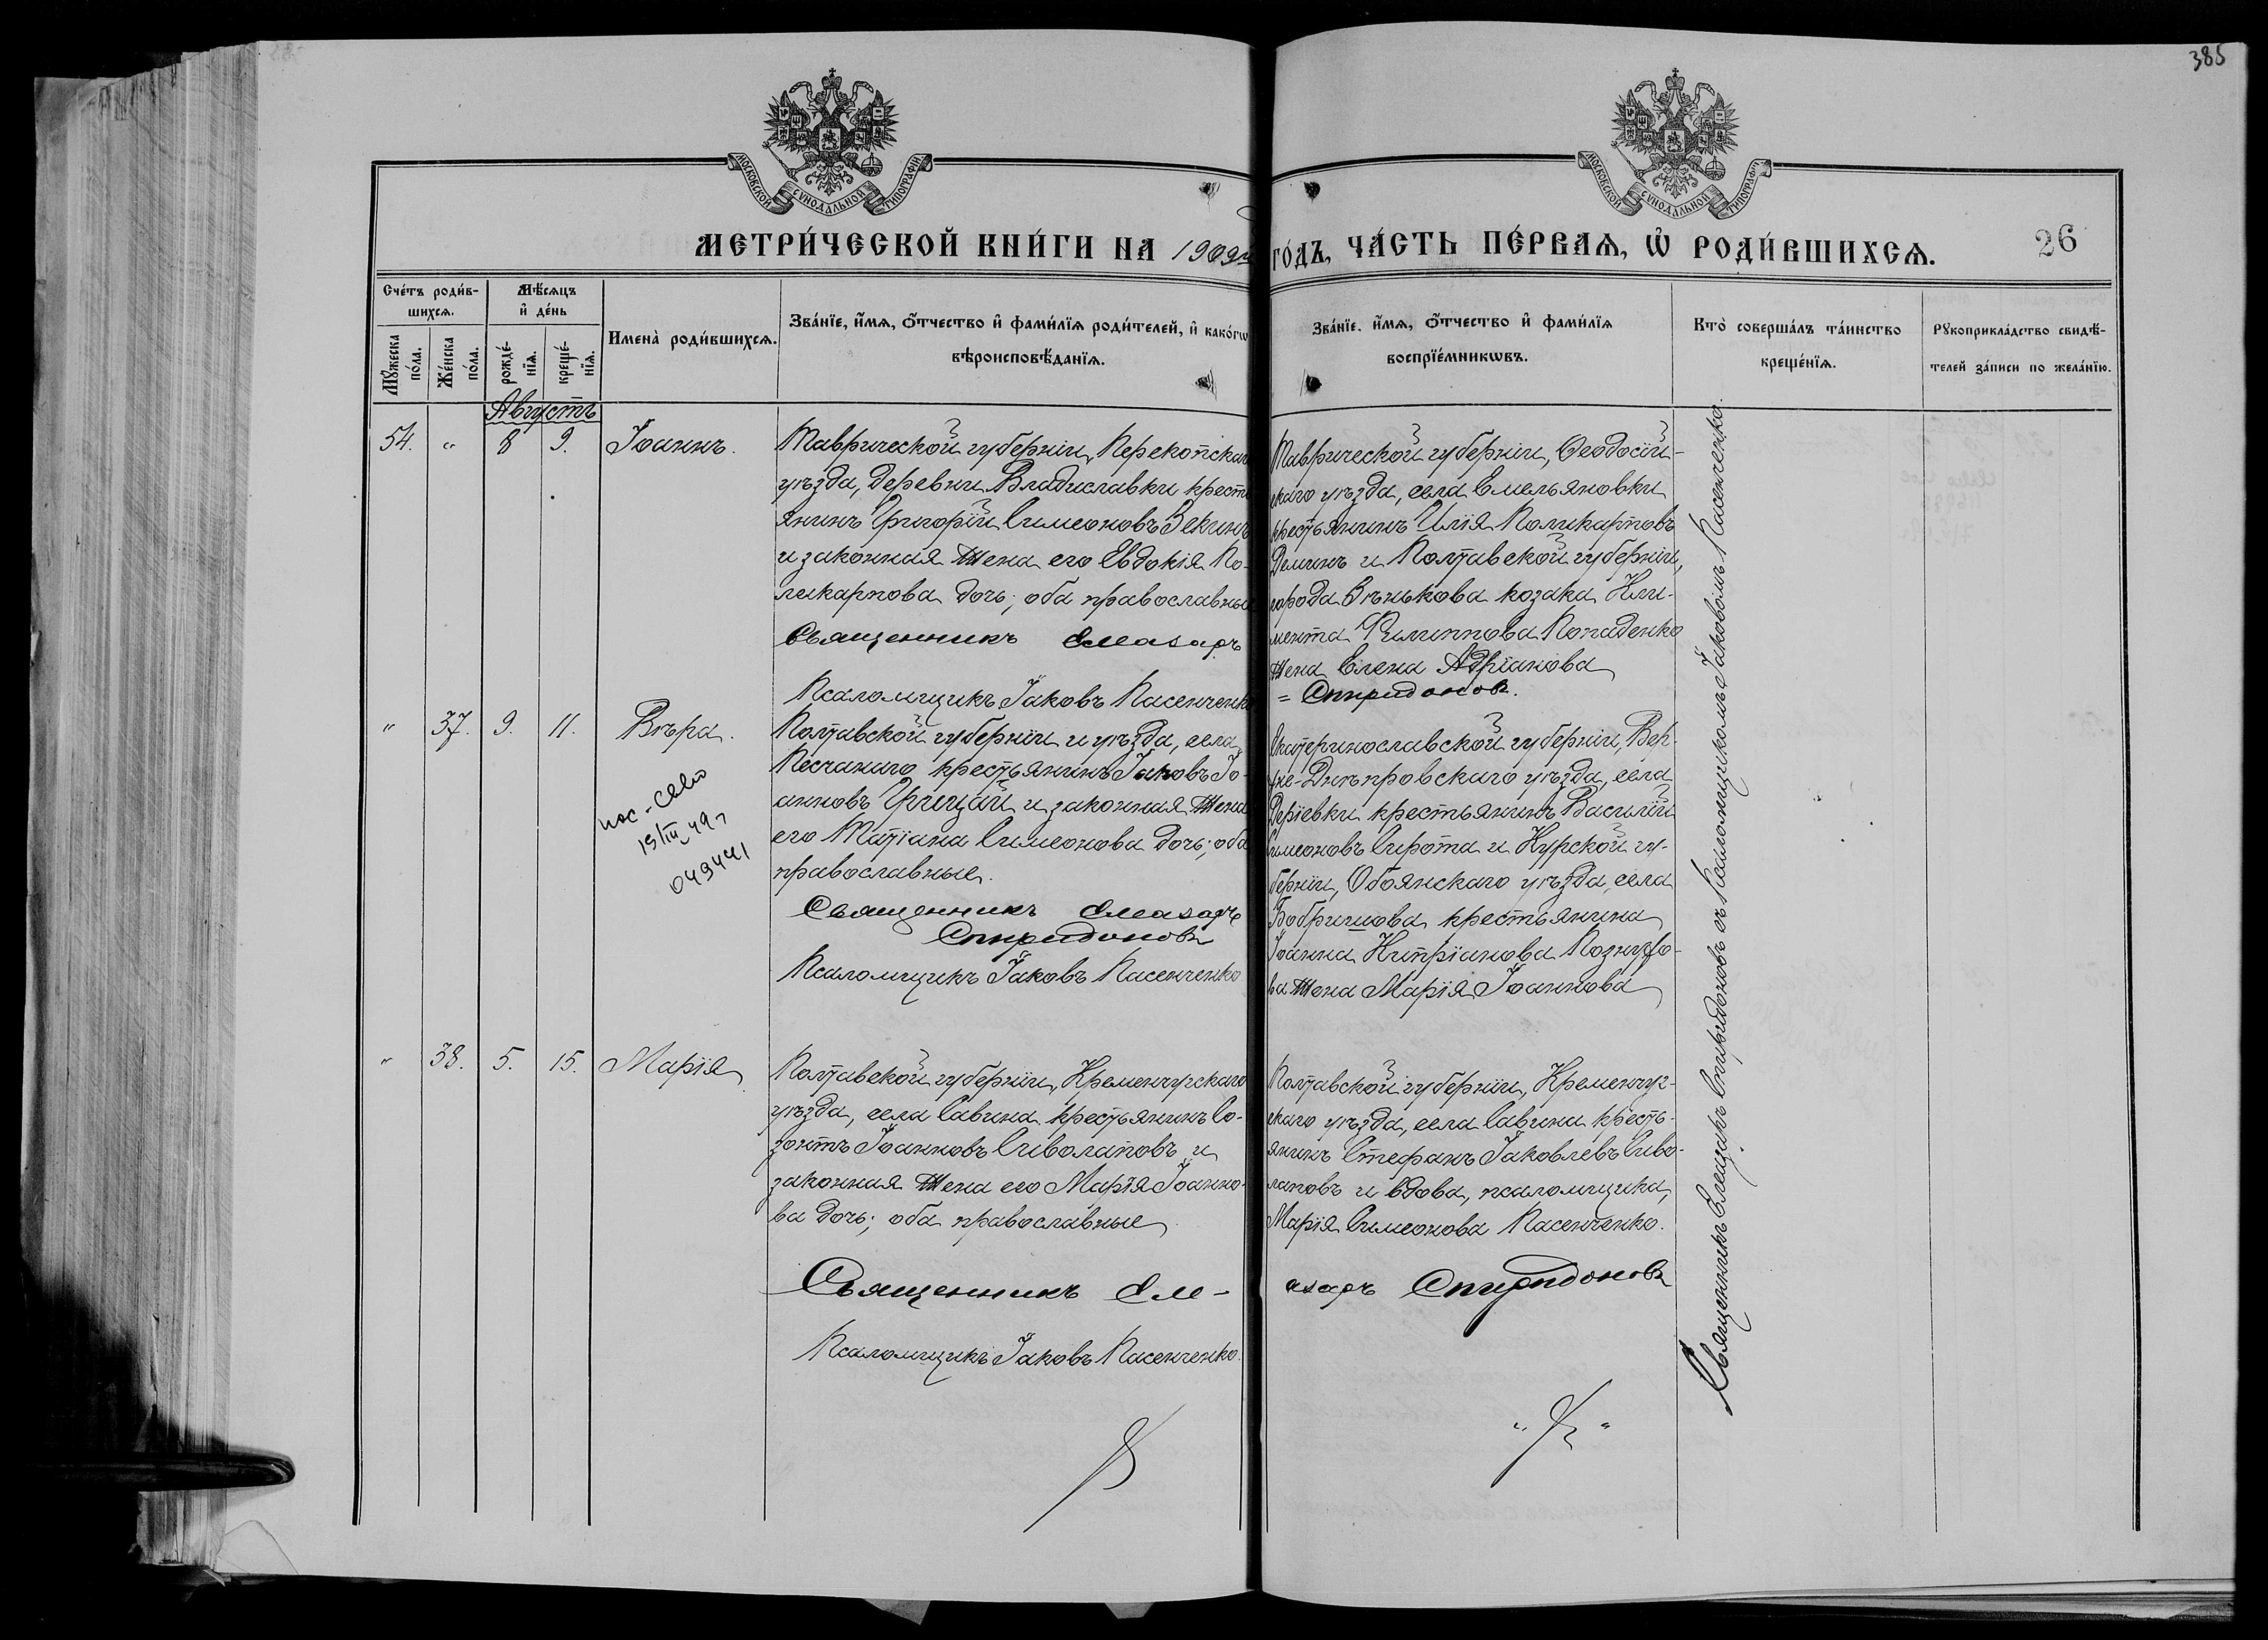 385
МОСКОВСКОЙ СѴНОДАЛЬНОЙ ТИПОГРАФІИ
МОСКОВСКОЙ СѴНОДАЛЬНОЙ ТИПОГРАФІИ
МЕТРИ́ЧЕСКОЙ КНИ́ГИ НА 1909й ГО́ДЪ, ЧА́СТЬ ПЕ́РВАѦ, Ѡ҆ РОДИ́ВШИХСѦ.
26
Сче́тъ роди́в-
шихсѧ.
Мꙋ́жеска
по́ла.
Же́нска
по́ла.
Мѣ́сѧцъ
и҆ де́нь
рожде́-
нїѧ.
креще́-
нїѧ.
Имена̀ роди́вшихсѧ.
Зва́нїе, и҆́мѧ, ѻ҆́тчество и҆ фами́лїѧ роди́телей, и҆ како́гѡ
вѣроисповѣ́данїѧ.
Зва́нїе, и҆́мѧ, ѻ҆́тчество и҆ фами́лїѧ
воспрїе́мникѡвъ.
Кто̀ соверша́лъ та́инство
креще́нїѧ.
Рꙋкоприкла́дство свидѣ́-
телей за́писи по жела́нїю.
Августъ
54. " 8 9. Іоаннъ.
Таврической губерніи, Перекопскаго
уѣзда, деревни Владиславки кресть
янинъ Григорій Симеоновъ Зекинъ
и законная жена его Евдокія По-
ликарпова дочь; оба православные
Священникъ Елеазаръ
Псаломщикъ Іаковъ Пасенченко
Таврической губерніи, Ѳеодосій-
скаго уѣзда, села Емельяновки
крестьянинъ Илія Поликарповъ
Деминъ и Полтавской губерніи,
города Вѣнькова козака Кли-
мента Филиппова Попаденко
жена Елена Адріанова
= Спиридоновъ.
" 37. 9. 11. Вѣра.
пос-
19/III 49г
049441
Полтавской губерніи и уѣзда, села
Песчанаго крестьянинъ Іаковъ Іо-
анновъ Грицай и законная жена
его Татіана Симеонова дочь; оба
православные.
Священникъ Елеазаръ
Спиридоновъ
Псаломщикъ Іаковъ Пасенченко
Екатеринославской губерніи, Вер-
хне-Днѣпровскаго уѣзда, села
Деріевки крестьянинъ Василій
Симеоновъ Сирота и Курской гу-
берніи, Обоянскаго уѣзда, села
Бобришова крестьянина
Іоанна Кипріанова
ва жена Марія Іоаннова
" 38. 5. 15. Марія
Полтавской губерніи, Кременчугскаго
уѣзда, села Савина крестьянинъ Со-
зонтъ Іоанновъ Сиволаповъ и
законная жена его Марія Іоанно-
ва дочь; оба православные
Священникъ Еле-
Псаломщикъ Іаковъ Пасенченко.
Полтавской губерніи, Кременчуг-
скаго уѣзда, села Савина кресть-
янинъ Стефанъ Іаковлевъ Сиво-
лаповъ и вдова, псаломщика,
Марія Симеонова Пасенченко.
азаръ Спиридоновъ
Священникъ Елеазаръ Спиридоновъ съ псаломщикомъ Іаковомъ Пасенченко.